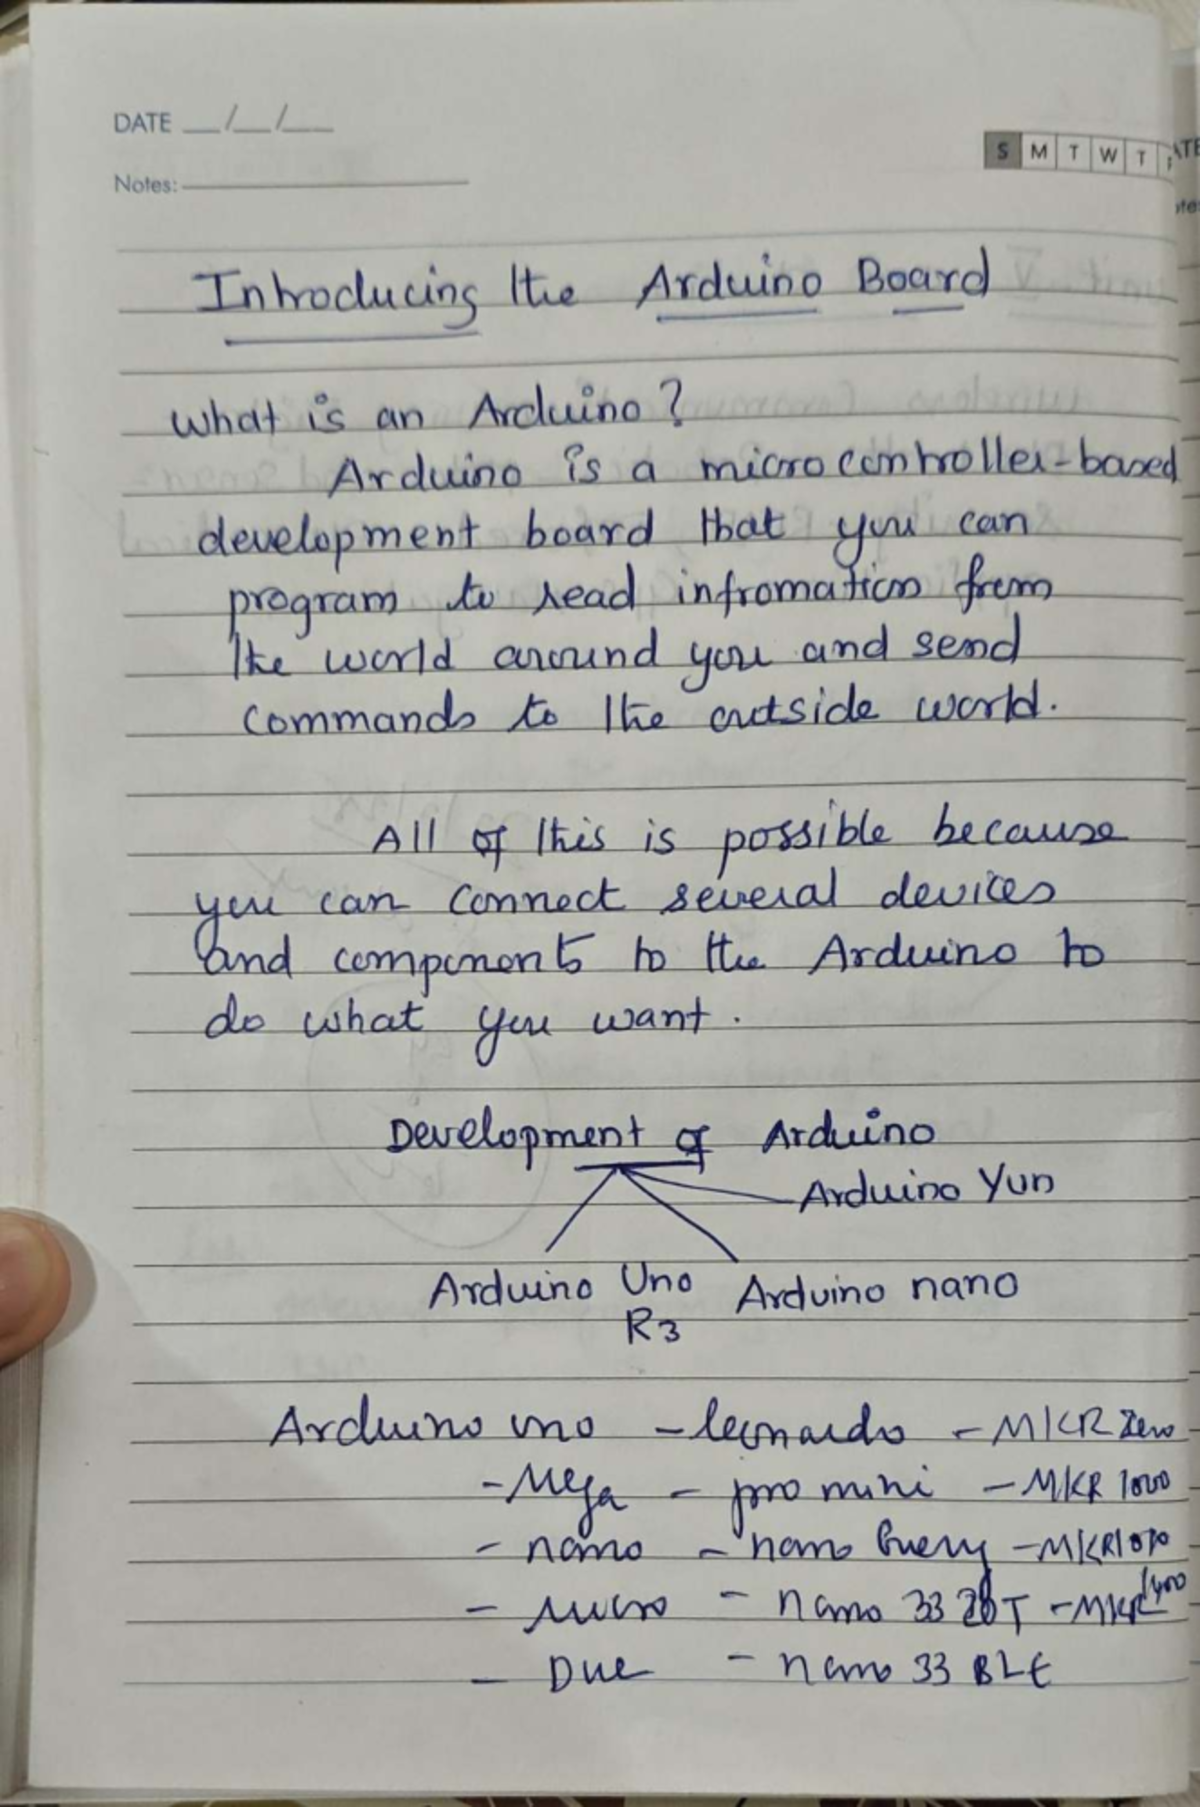 DATE __/__/__
S M T W T
Notes:
Introducing the Arduino Board
What is an Arduino?
Arduino is a microcontroller-based
development board that you can
program to read infromation from
the world around you and send
commands to the outside world.
All of this is possible because
you can connect several devices
and components to the Arduino to
do what you want.
Development of Arduino
Arduino Yun
Arduino Uno Arduino nano
R3
Arduino uno - leonardo - MKR Zero
- Mega - pro mini - MKR 1000
- nano - nano Every - MKR
- micro - nano 33 - MKR 1400
- Due - nano 33 BLE